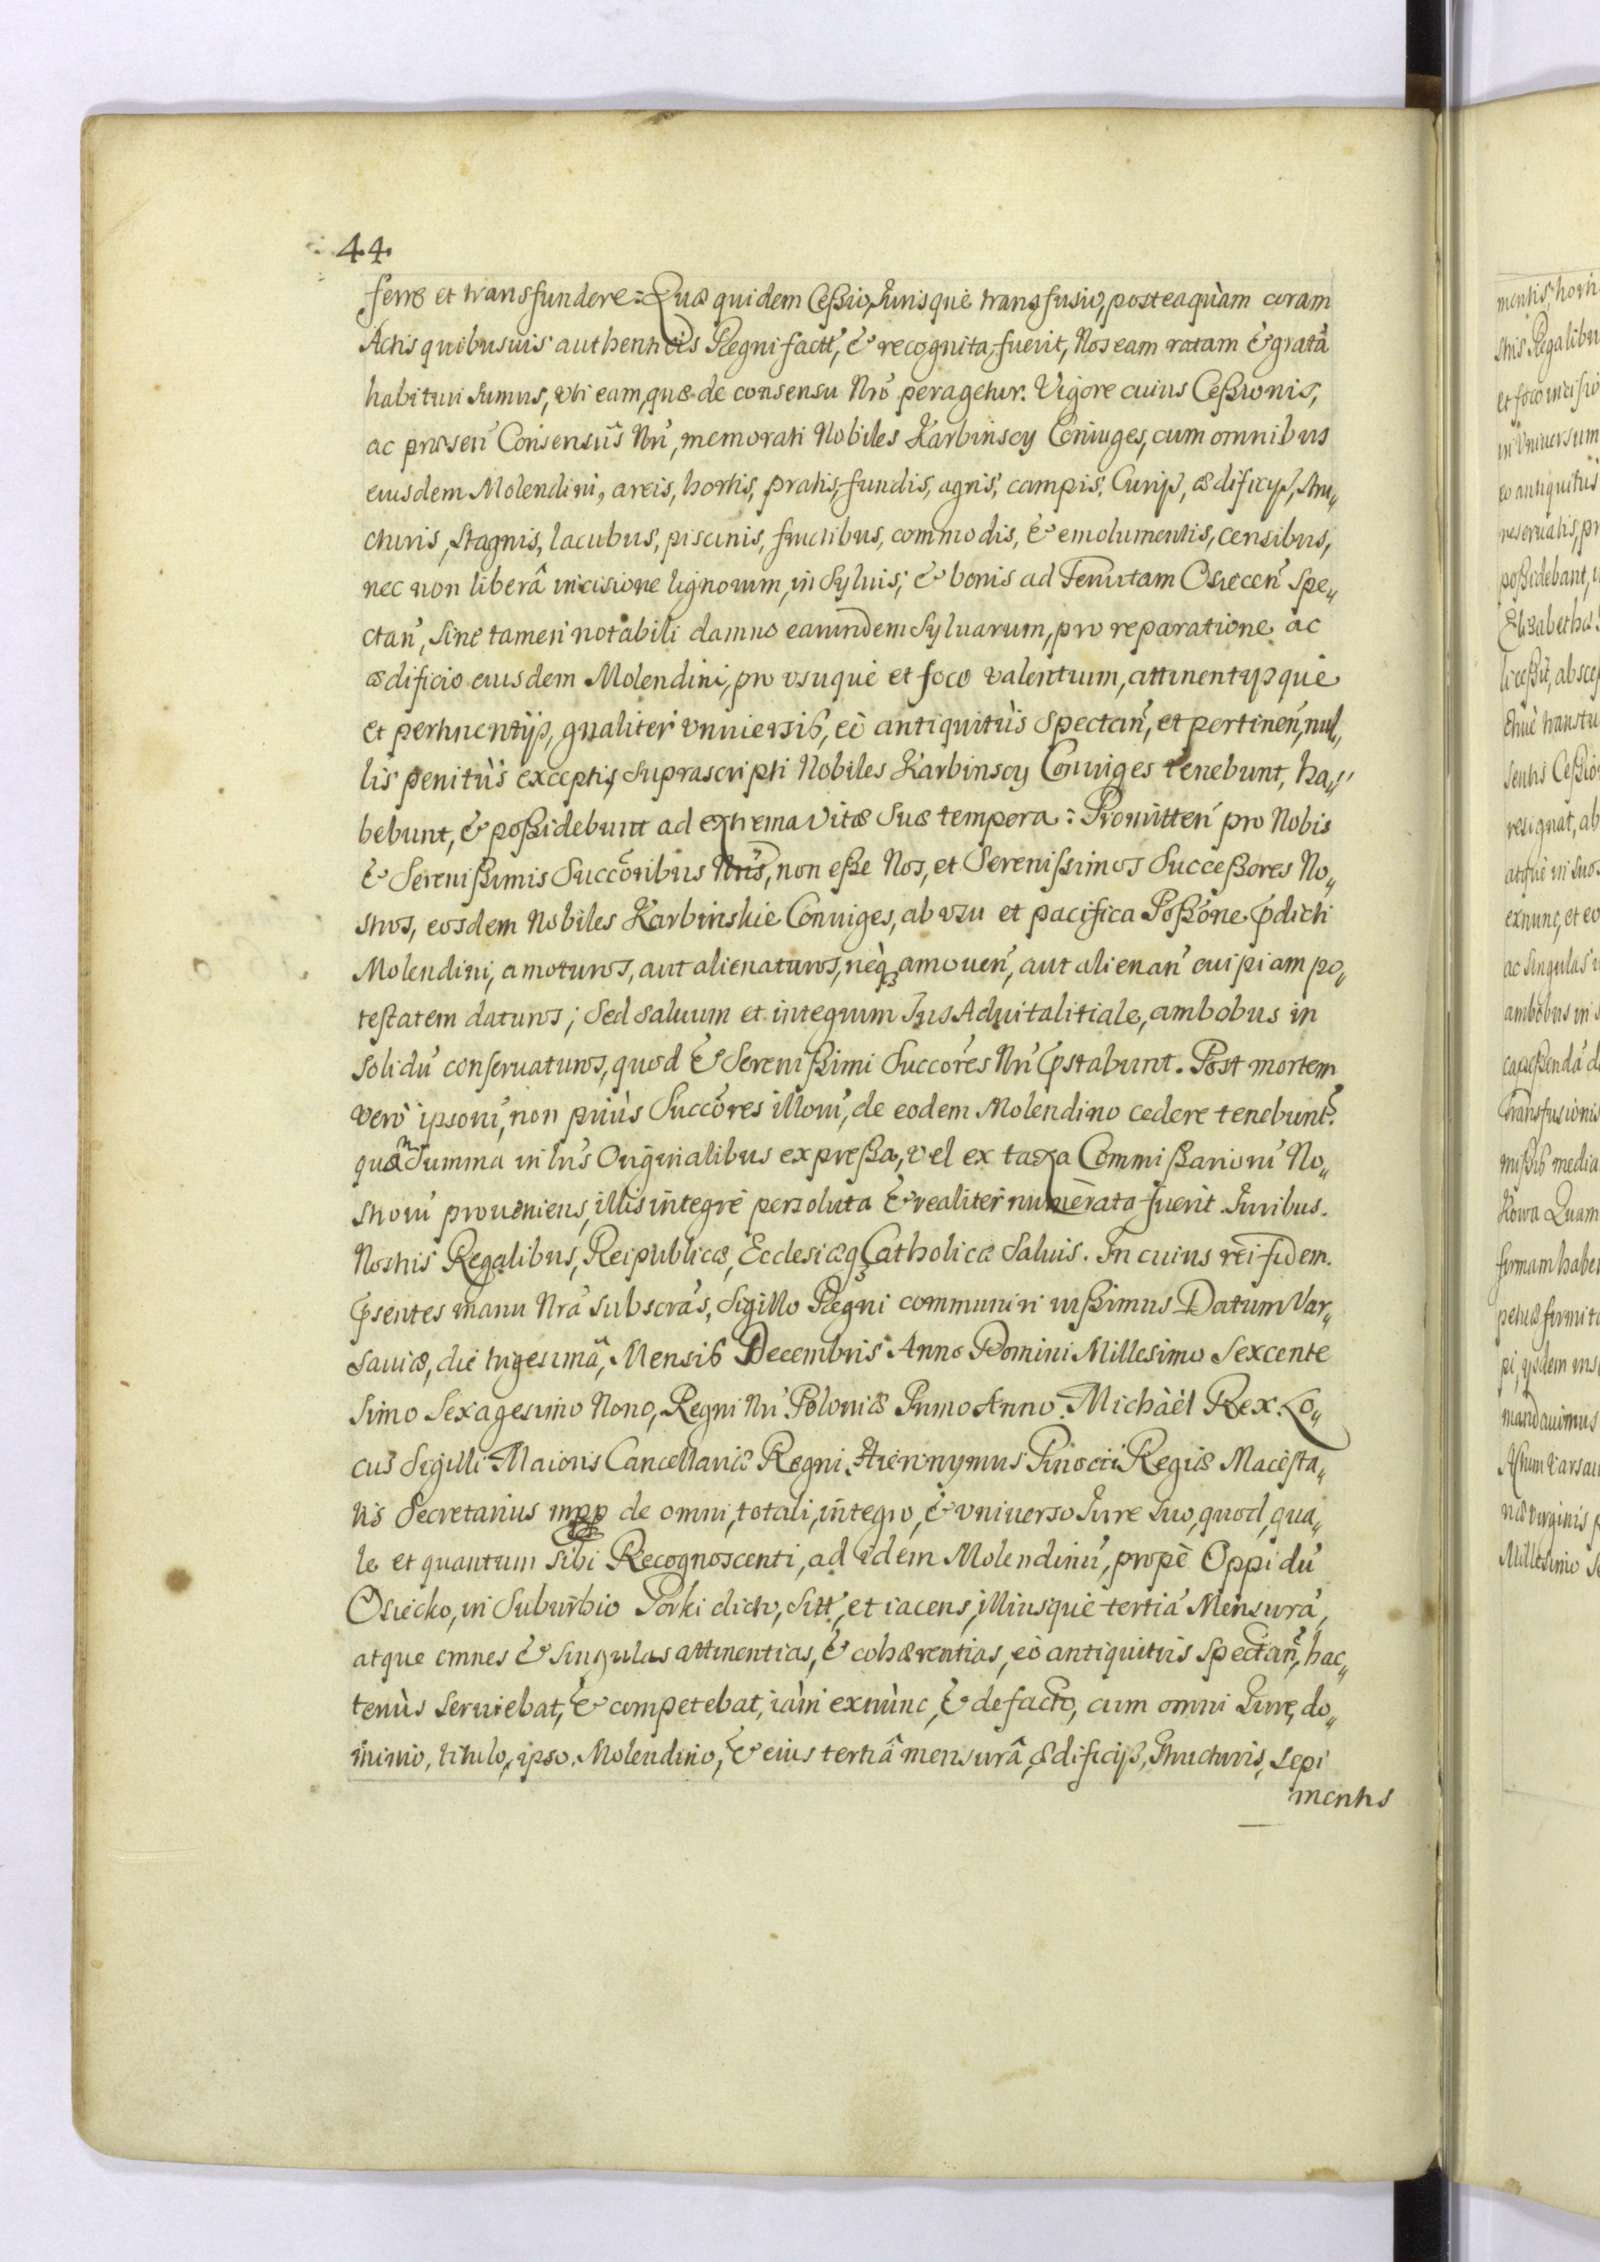 44.
ferre et transfundere: Quæ quidem Ceßio, Jurisquè transfusio, posteaquàm coram
Actis quibusuis authenticis Regni factt', & recognita fuerit, Nos eam ratam & gratã
habituri sumus, uti eam, quæ de consensu Nrõ peragetur. Vigore cuius Ceßionis,
ac præsen' Consensûs Nri', memorati Nobiles Karbinscy Coniuges, cum omnibus
eiusdem Molendini, areis, hortis, pratis, fundis, agris, campis, Curijs, ædificijs, stru„
cturis, stagnis, lacubus, piscinis, fructibus, commodis, & emolumentis, censibus,
nec non liberâ incisione lignorum, in syluis, & bonis ad Tenutam Osiecen' spe„
ctan', sine tamen notabili damno earundem syluarum, pro reparatione ac
ædificio eiusdem Molendini, pro usuquè et foco valentium, attinentijsquè
et pertinentijs, qualiter vniuersis, eò antiquitùs spectan', et pertinen', nul„
lis penitùs exceptis, suprascripti Nobiles Karbinscy Coniuges tenebunt, ha„
bebunt, & poßidebunt ad extrema vitæ suæ tempora: Promitten' pro Nobis
& Sereni&#223;imis Succõribus Nris, non eße Nos, et Sereni&#223;imos Successores No„
stros, eosdem Nobiles Karbinskie Coniuges, ab usu et pacifica Poßõne pdicti
Molendini, amoturos, aut alienaturos, neq3 amouen', aut alienan' cuipiam po„
testatem daturos; sed saluum et integrum Jus Aduitalitiale, ambobus in
solidũ conseruaturos, quod & Serenißimi Succõres Nri pstabunt. Post mortem
verò ipsorũ, non priùs Succõres illorũ, de eodem Molendino cedere tenebunt',
quàm summa in lris Originalibus expreßa, vel ex taxa Commißariorũ No„
strorũ proueniens, illis integrè persoluta & realiter numerata fuerit. Juribus
Nostris Regalibus, Reipublicæ, Ecclesiæq3 Catholicæ saluis. In cuius rei fidem
psentes manu Nrã subscrãs, Sigillo Regni communiri iußimus. Datum Var„
sauiæ, die trigesimâ, Mensis Decembris Anno Domini Millesimo Sexcente
simo Sexagesimo Nono, Regni Nri Poloniæ Primo Anno. Michàël Rex. Lo„
cus Sigilli Maioris Cancellariæ Regni. Hieronymus Pinocci Regiæ Maiesta„
tis Secretarius mpp de omni, totali, integro, & vniuerso Jure suo, quod, qua„
le et quantum sibi Recognoscenti, ad idem Molendinũ, propè Oppidũ
Osiecko, in suburbio Porki dicto, sitt', et iacens, illiusquè tertiã Mensurã,
atque omnes & singulas attinentias, & cohærentias, eò antiquitùs spectan', hac„
tenùs seruiebat, & competebat, iàm exnùnc, & defacto, cum omni Jure, do„
minio, titulo, ipso Molendino, & eius tertiâ mensurâ, ædificijs, structuris, sepi
mentis